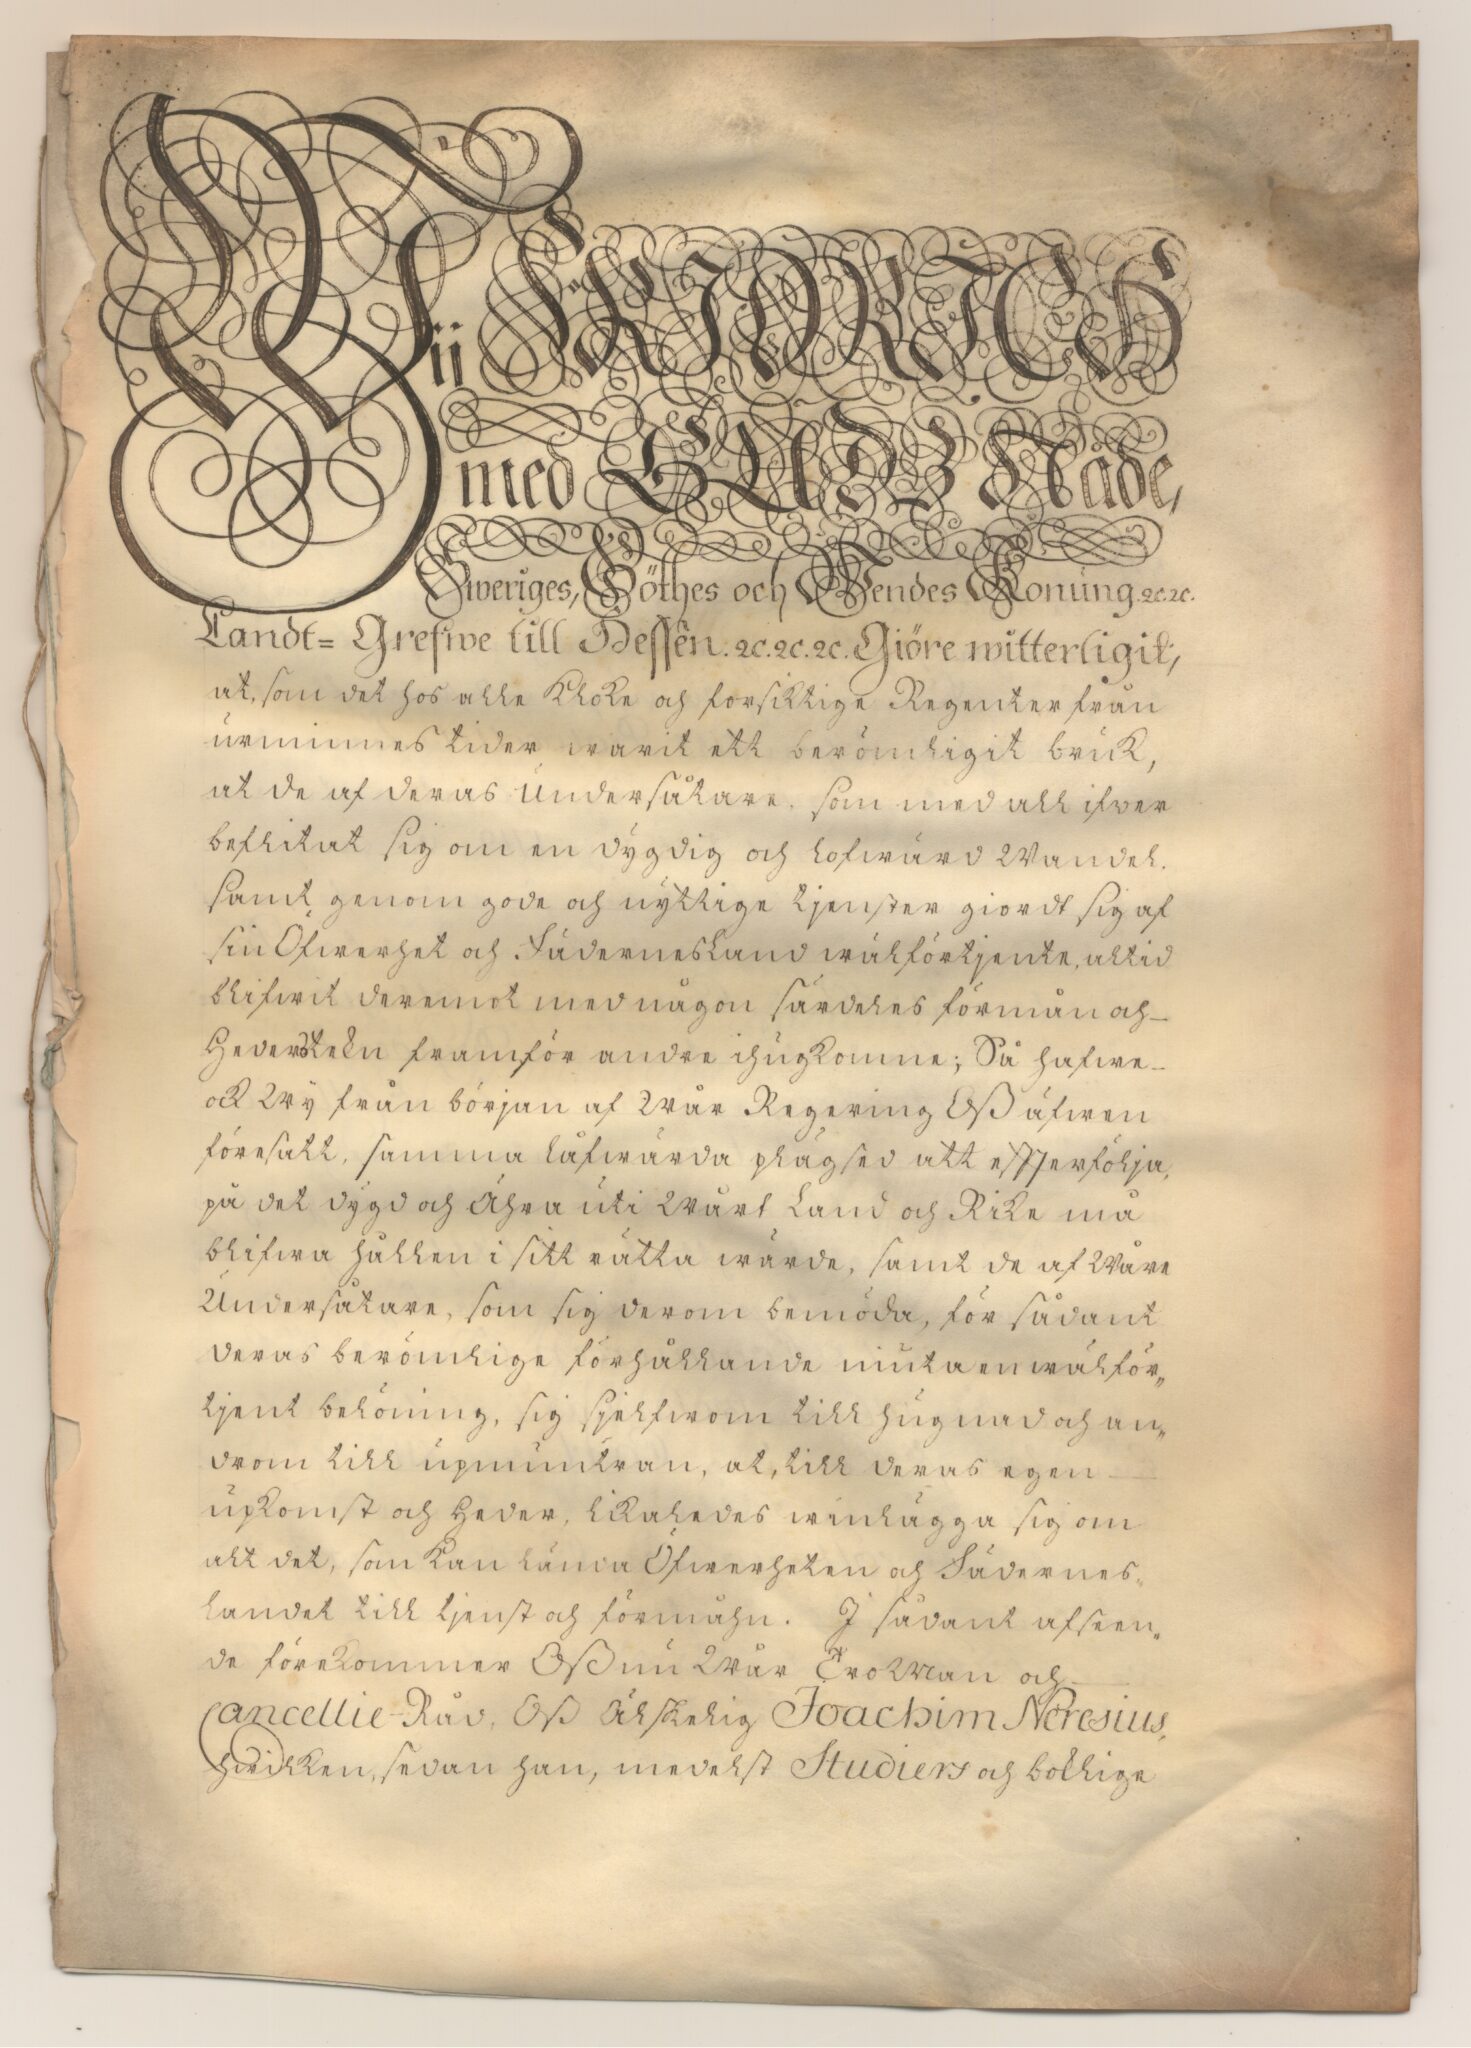 Wii FRIDRICH
med GUDZ Nåde,
Sweriges, Göthes och Wendes Konüng. ꝛc. ꝛc.
Landt=Grefwe till Hessen. ꝛc. ꝛc. ꝛc. Giöre witterligit,
at, som det hos alle kloke och försiktige Regenter från
urminnes tider warit ett berömligit bruk,
at de af deras Undersåtare, som med all ifwer
beflitat sig om en dygdig och lofwärd Wandel,
samt genom gode och nyttige tjenster giordt sig af
sin Öfwerhet och Fädernesland wälförtjente, altid
blifwit deremot med någon särdeles förmån och
Hederstekn framför andre ihugkomne; Så hafwe
ock Wy från början af Wår Regering Oß äfwen
föresatt, samma låfwärda plägsed att efterfölja,
på det dygd och Ähra uti Wårt Land och Rike må
blifwa hållen i sitt rätta wärde, samt de af Wåre
Undersåtare, som sig derom bemöda, för sådant
deras berömlige förhållande niuta en wälför„
tjent belöning, sig sjelfwom till hugnad och an„
drom till upmuntran, at, till deras egen
upkomst och Heder, likaledes winlägga sig om
alt det, som kan lända Öfwerheten och Fädernes„
landet till tjenst och förmåhn. I sådant afseen„
de förekommer Oß nu Wår TroMan och
Cancellie-Råd, Oß Älskelig Joachim Neresius,
hwilken, sedan han, medelst Studiers och boklige